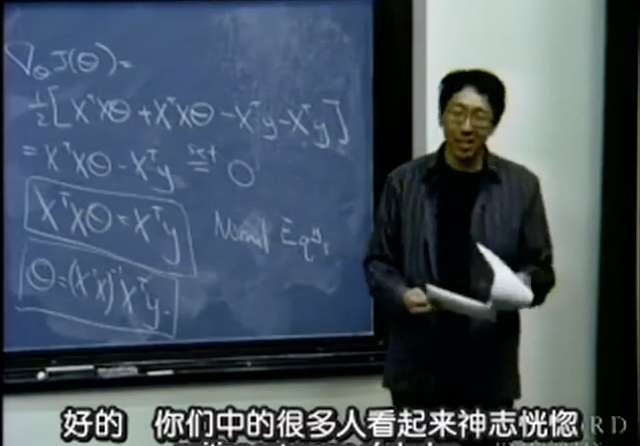 ∇_θ J(θ) =
½ [XᵀXθ + XᵀXθ − Xᵀy − Xᵀy]
= XᵀXθ − Xᵀy set= 0
XᵀXθ = Xᵀy
Normal Eqns
θ = (XᵀX)⁻¹Xᵀy.
好的 你们中的很多人看起来神志恍惚